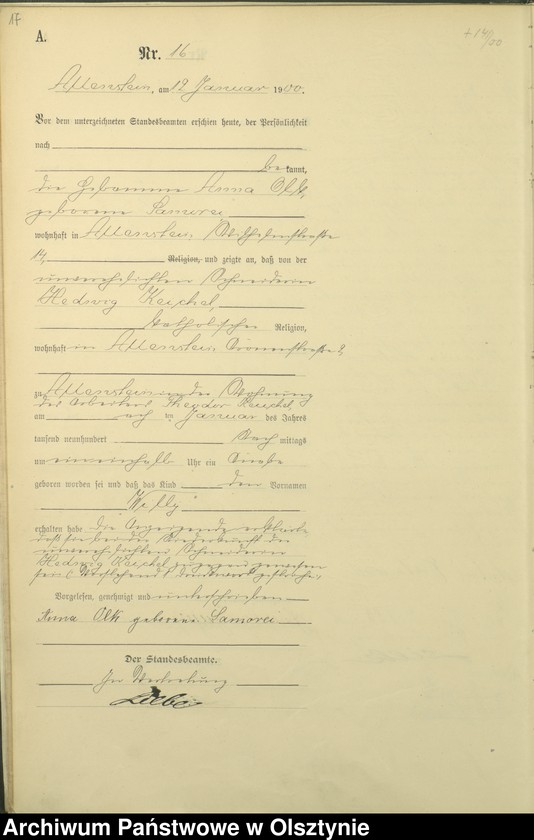 17
+ 14/00
A.
Nr. 16
Allenstein, am 12 Januar 1900.
Vor dem unterzeichneten Standesbeamten erschien heute, der Persönlichkeit
nach
bekannt,
die Hebamme Anna Olk,
geborene Samorei
wohnhaft in Allenstein, Wilhelmstraße
14, Religion, und zeigte an, daß von der
unverehelichten Schneiderin
Hedwig Keichel,
katholischer Religion,
wohnhaft in Allenstein,
zu Allenstein in der Wohnung
des Arbeiters Theodor Keichel,
am ten Januar des Jahres
tausend neunhundert Nachmittags
um Uhr ein Knabe
geboren worden sei und daß das Kind den Vornamen
"Willy"
erhalten habe. Die Anzeigende erklärte
daß sie bei der Niederkunft der
unverehelichten Schneiderin
Hedwig Keichel zugegen gewesen
sei. (Vorstehend Druckwort gestrichen.
Vorgelesen, genehmigt und unterschrieben
Anna Olk geborene Samorei
Der Standesbeamte.
In Vertretung
Archiwum Państwowe w Olsztynie